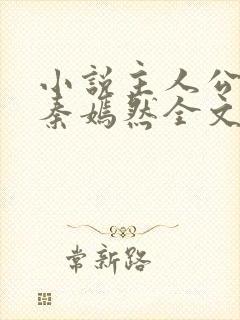 小说主人公
秦嫣然全文
常新路